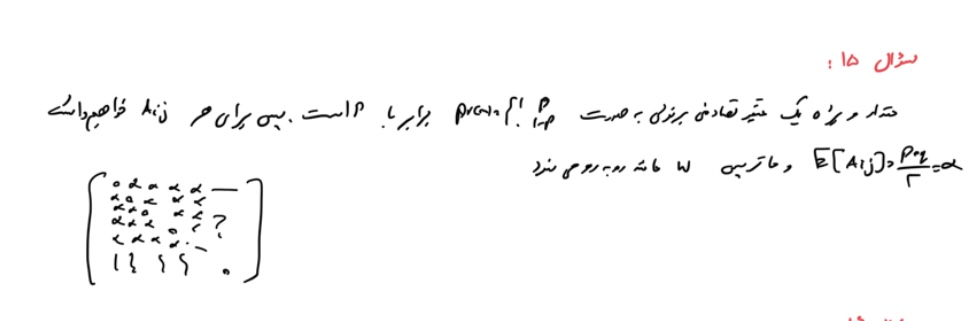 سوال ۱۵ :
مقدار ویژه یک متغیر تصادفی برنولی به صورت P(X)= { 1 P 0 1-P برابر با P است. پس برای هر Aij خواهیم داشت
E[Aij] = p+q/۲ = α و ماتریس W مانند روبه‌رو می‌شود
0 α α α α —
α 0 α α α
α α 0 α α
α α α 0 α ?
α α α α 0 —
0